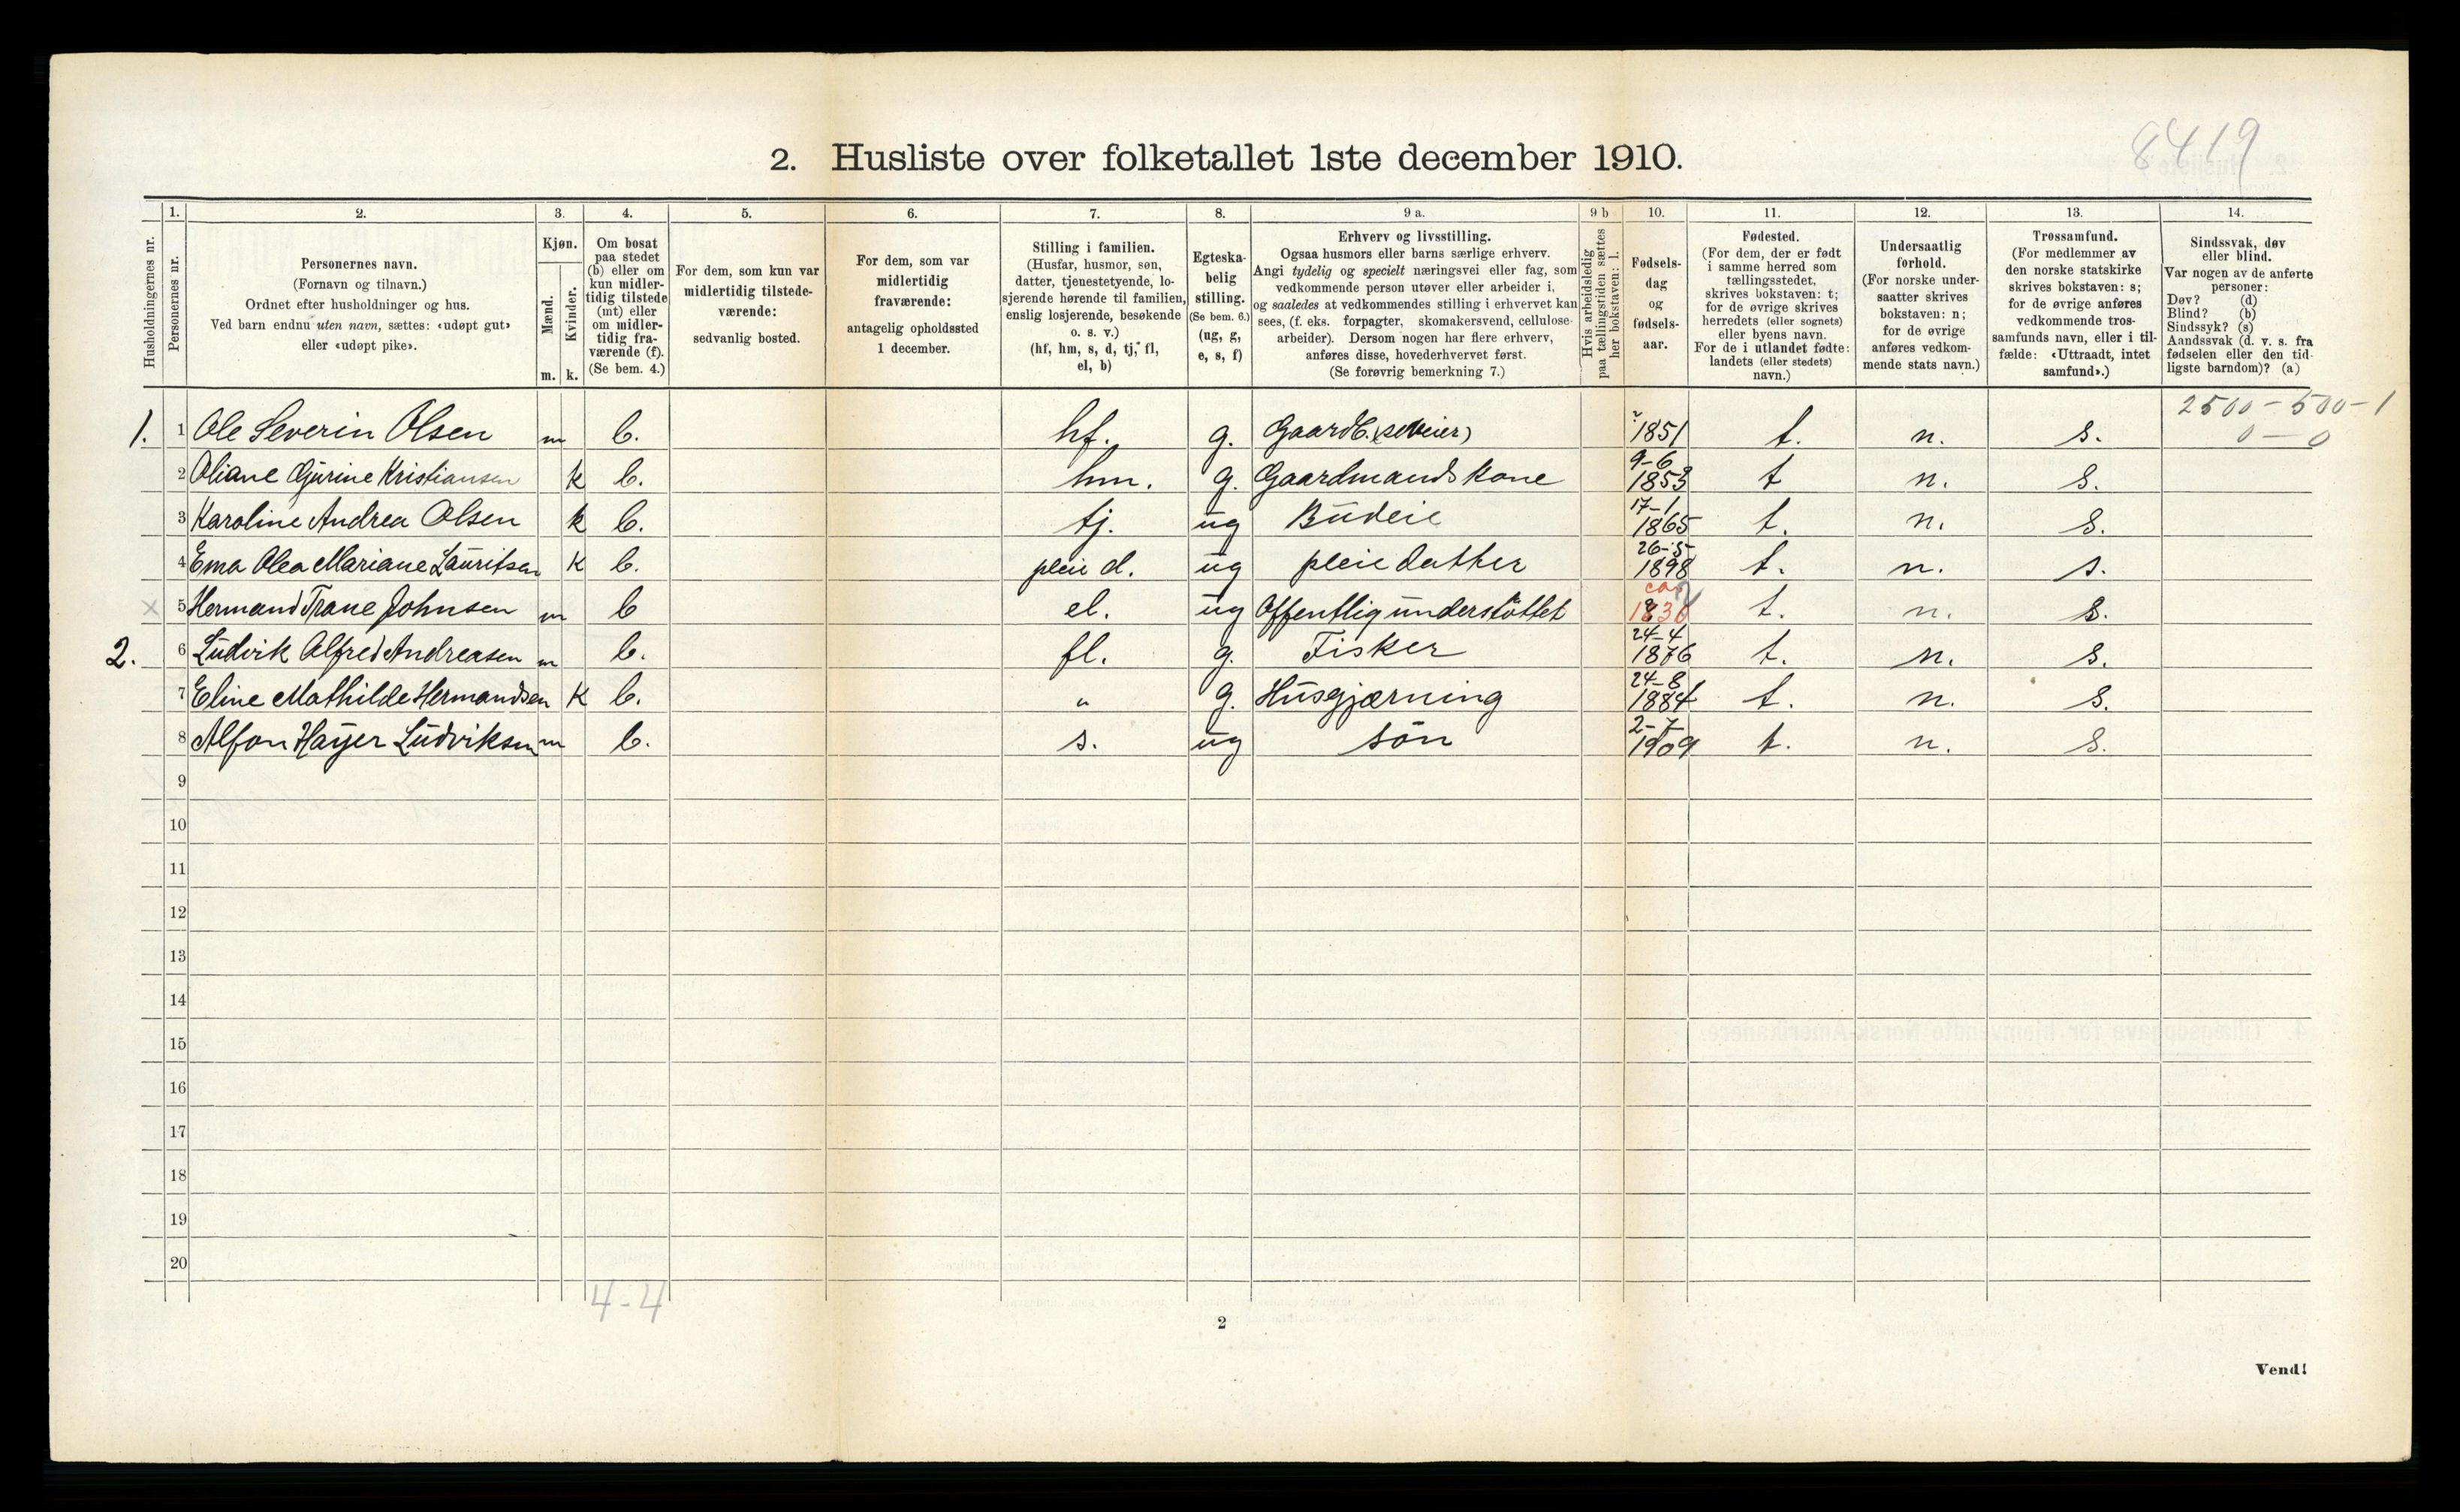 8419
2. Husliste over folketallet 1ste december 1910.
Husholdningernes nr.
1.
Personernes nr.
2.
Personernes navn.
(Fornavn og tilnavn.)
Ordnet efter husholdninger og hus.
Ved barn endnu uten navn, sættes: «udøpt gut»
eller «udøpt pike».
3.
Kjøn.
Mænd.
Kvinder.
m. k.
4.
Om bosat
paa stedet
(b) eller om
kun midler-
tidig tilstede
(mt) eller
om midler-
tidig fra-
værende (f).
(Se bem. 4.)
5.
For dem, som kun var
midlertidig tilstede-
værende:
sedvanlig bosted.
6.
For dem, som var
midlertidig
fraværende:
antagelig opholdssted
1 december.
7.
Stilling i familien.
(Husfar, husmor, søn,
datter, tjenestetyende, lo-
sjerende hørende til familien,
enslig losjerende, besøkende
o. s. v.)
(hf, hm, s, d, tj, fl,
el, b)
8.
Egteska-
belig
stilling.
(Se bem. 6.)
(ug, g,
e, s, f)
9 a.
Erhverv og livsstilling.
Ogsaa husmors eller barns særlige erhverv.
Angi tydelig og specielt næringsvei eller fag, som
vedkommende person utøver eller arbeider i,
og saaledes at vedkommendes stilling i erhvervet kan
sees, (f. eks. forpagter, skomakersvend, cellulose-
arbeider). Dersom nogen har flere erhverv,
anføres disse, hovederhvervet først.
(Se forøvrig bemerkning 7.)
9 b
Hvis arbeidsledig
paa tællingstiden sættes
her bokstaven: l.
10.
Fødsels-
dag
og
fødsels-
aar.
11.
Fødested.
(For dem, der er født
i samme herred som
tællingsstedet,
skrives bokstaven: t;
for de øvrige skrives
herredets (eller sognets)
eller byens navn.
For de i utlandet fødte:
landets (eller stedets)
navn.)
12.
Undersaatlig
forhold.
(For norske under-
saatter skrives
bokstaven: n;
for de øvrige
anføres vedkom-
mende stats navn.)
13.
Trossamfund.
(For medlemmer av
den norske statskirke
skrives bokstaven: s;
for de øvrige anføres
vedkommende tros-
samfunds navn, eller i til-
fælde: «Uttraadt, intet
samfund».)
14.
Sindssvak, døv
eller blind.
Var nogen av de anførte
personer:
Døv? (d)
Blind? (b)
Sindssyk? (s)
Aandssvak (d. v. s. fra
fødselen eller den tid-
ligste barndom)? (a)
2500 - 500 - 1
0 - 0
1. 1 Ole Severin Olsen m b. hf. g. Gaardb. (selveier) 1851 t. n. s.
2 Oliane Gjurine Kristiansen k b. hm. g. Gaardmandskone 9-6 1853 t n. s.
3 Karoline Andrea Olsen k b. tj. ug Budeie 17-1 1865 t. n. s.
4 Ema Olea Mariane Lauritsen k b. pleie d. ug pleiedatter 26-5- 1898 t. n. s.
x 5 Hermand Trane Johnsen m b el. ug Offentlig understöttet ca t. n. s.
2. 6 Ludvik Alfred Andreasen m b. fl. g. Fisker 24-4 1876 t. n. s.
7 Eline Mathilde Hermandsen k b. " g. Husgjærning 24-8 1884 t. n. s.
8 Alfon Høyer Ludviksen m b. s. ug sön 2-7- 1909 t. n. s.
9
10
11
12
13
14
15
16
17
18
19
20
4-4
2
Vend!